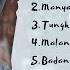 2. Manya
3. Tungk
4. Malan
5. Badan